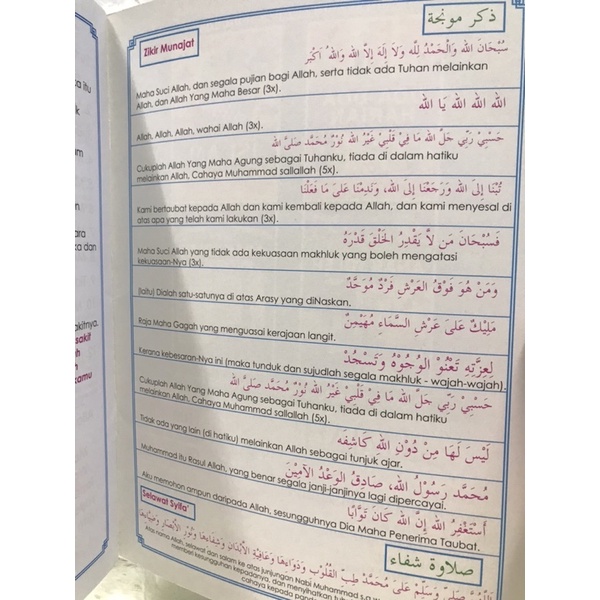 Zikir Munajat
ذكر مونجة
سُبْحَانَ الله وَالْحَمْدُ لِلَّه وَلاَ إِلَهَ إِلاَّ الله وَاللهُ اَكْبَر
Maha Suci Allah, dan segala pujian bagi Allah, serta tidak ada Tuhan melainkan
Allah, dan Allah Yang Maha Besar (3x).
الله الله الله يَا الله
Allah, Allah, Allah, wahai Allah (3x).
حَسْبِيْ رَبِّيْ جَلَّ الله مَا فِيْ قَلْبِيْ غَيْرُ الله نُوْرُ مُحَمَّد صَلَّى الله
Cukuplah Allah Yang Maha Agung sebagai Tuhanku, tiada di dalam hatiku
melainkan Allah, Cahaya Muhammad sallallah (5x).
تُبْنَا إِلَى الله وَرَجَعْنَا إِلَى الله، وَنَدِمْنَا عَلَىَ مَا فَعَلْنَا
Kami bertaubat kepada Allah dan kami kembali kepada Allah, dan kami menyesal di
atas apa yang telah kami lakukan (3x).
فَسُبْحَانَ مَن لاَّ يَقْدِرُ الخَلْقَ قَدْرَهُ
Maha Suci Allah yang tidak ada kekuasaan makhluk yang boleh mengatasi
kekuasaan-Nya (3x).
وَمَنْ هُوَ فَوْقُ العَرْشِ فَرْدٌ مُوَحَّدٌ
(Iaitu) Dialah satu-satunya di atas Arasy yang diNaskan.
مَلِيْكٌ عَلىَ عَرْشِ السَّمَاءِ مُهَيْمِنٌ
Raja Maha Gagah yang menguasai kerajaan langit.
لِعِزَّتِهِ تَعْنُو الْوُجُوْهُ وَتَسْجُدْ
Kerana kebesaran-Nya ini (maka tunduk dan sujudlah segala makhluk - wajah-wajah).
حَسْبِيْ رَبِّيْ جَلَّ الله مَا فِيْ قَلْبِيْ غَيْرُ الله نُوْرُ مُحَمَّد صَلَّى الله
Cukuplah Allah Yang Maha Agung sebagai Tuhanku, tiada di dalam hatiku
melainkan Allah, Cahaya Muhammad sallallah (5x).
لَيْسَ لَهَا مِنْ دُوْنِ الله كَاشِفَه
Tidak ada yang lain (di hatiku) melainkan Allah sebagai tunjuk ajar.
مُحَمَّد رَسُوْلُ الله، صَادِقُ الوَعْدُ الآمِيْنَ
Muhammad itu Rasul Allah, yang benar segala janji-janjinya lagi dipercayai.
أَسْتَغْفِرُ الله إِنَّ الله كَانَ تَوَّابًا
Aku memohon ampun daripada Allah, sesungguhnya Dia Maha Penerima Taubat.
Selawat Syifa'
صلاوة شفاء
صَلِّ وَسَلِّمْ عَلىَ مُحَمَّدْ طِبِّ القُلُوْبِ وَدَوَاءِهَا وَعَافِيَةِ الأَبْدَانِ وَشِفَاءِهَا وَنُوْرِ الأَبْصَارِ وَضِيَاءِهَا
Atas nama Allah, selawat dan salam ke atas junjungan Nabi Muhammad s.a.w
memberi kesungguhan kepadanya, dan menyihatkan
cahaya kepada
itu
k
am
n
ara
ka dan
akitnya.
sakit
h
kamu